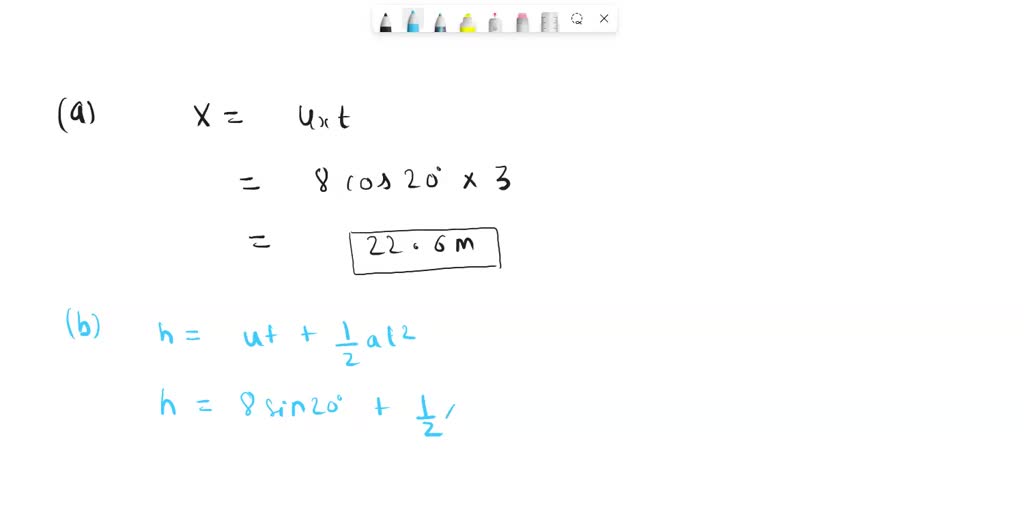 (a) x = uₓt
= 8 cos 20° × 3
= 22.6m
(b) h = ut + 1/2 at²
h = 8 sin 20° + 1/2 (